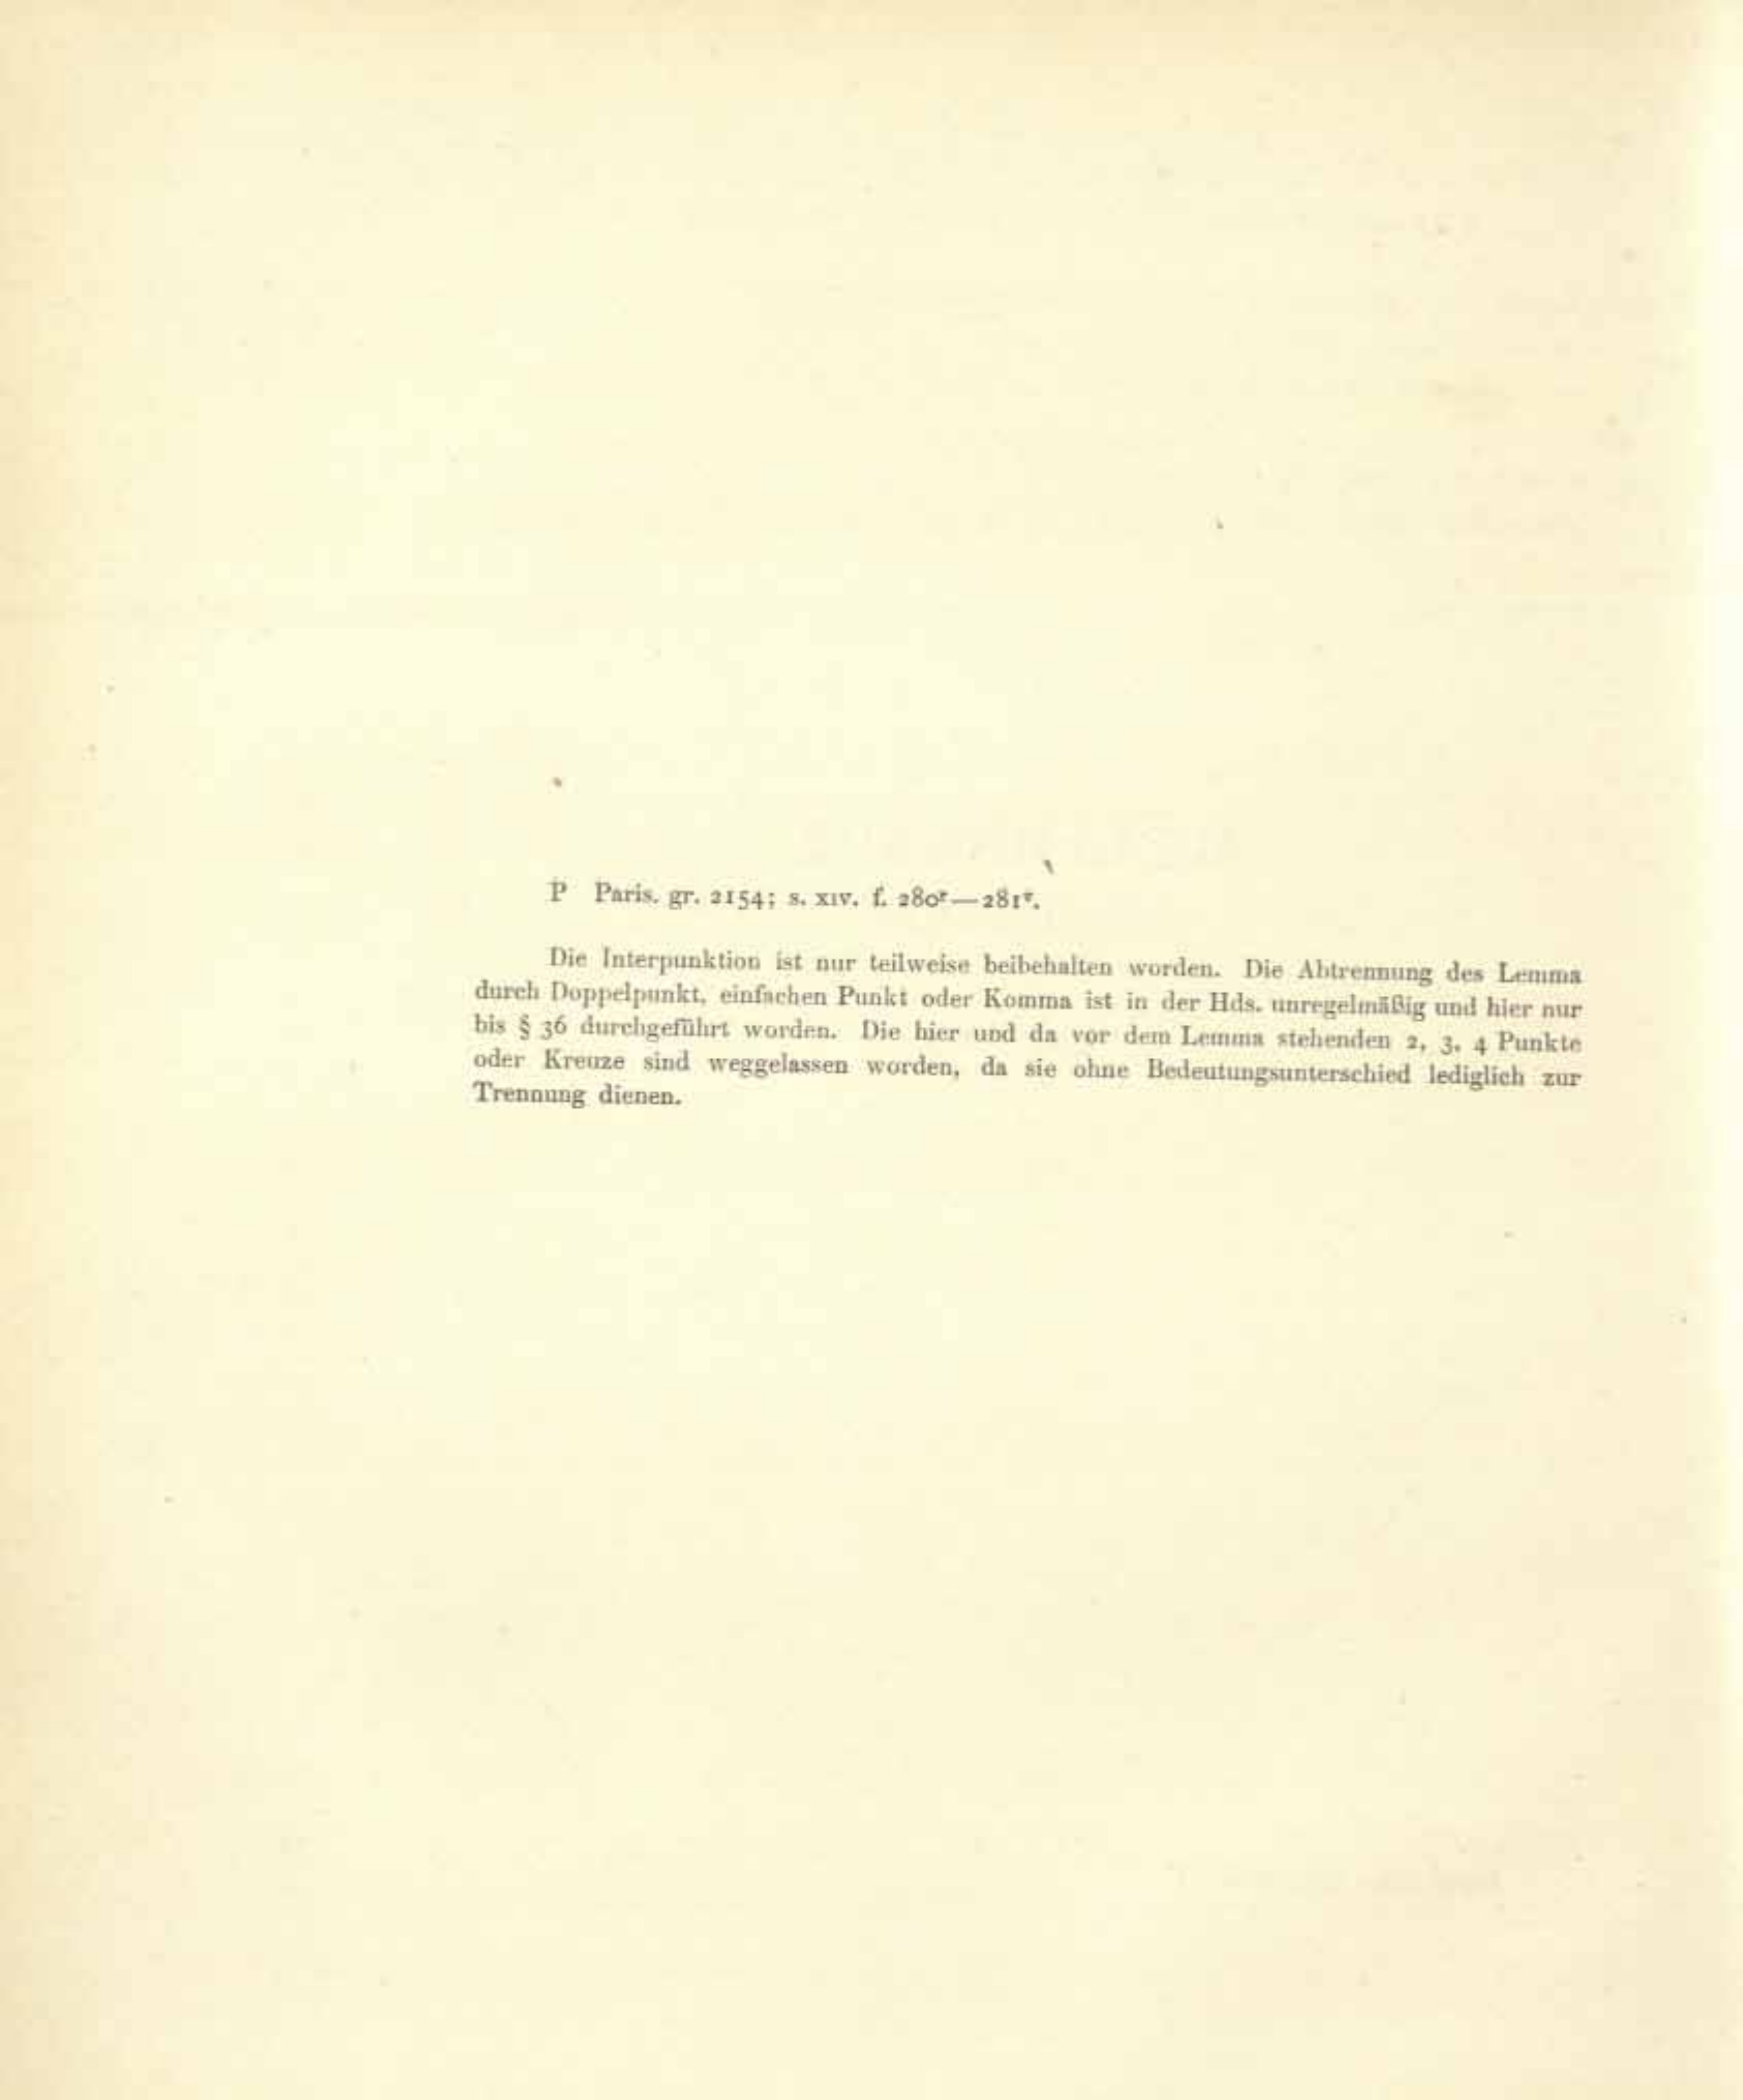 P Paris. gr. 2154; s. xiv. f. 280r—281v.
Die Interpunktion ist nur teilweise beibehalten worden. Die Abtrennung des Lemma
durch Doppelpunkt, einfachen Punkt oder Komma ist in der Hds. unregelmäßig und hier nur
bis § 36 durchgeführt worden. Die hier und da vor dem Lemma stehenden 2, 3, 4 Punkte
oder Kreuze sind weggelassen worden, da sie ohne Bedeutungsunterschied lediglich zur
Trennung dienen.